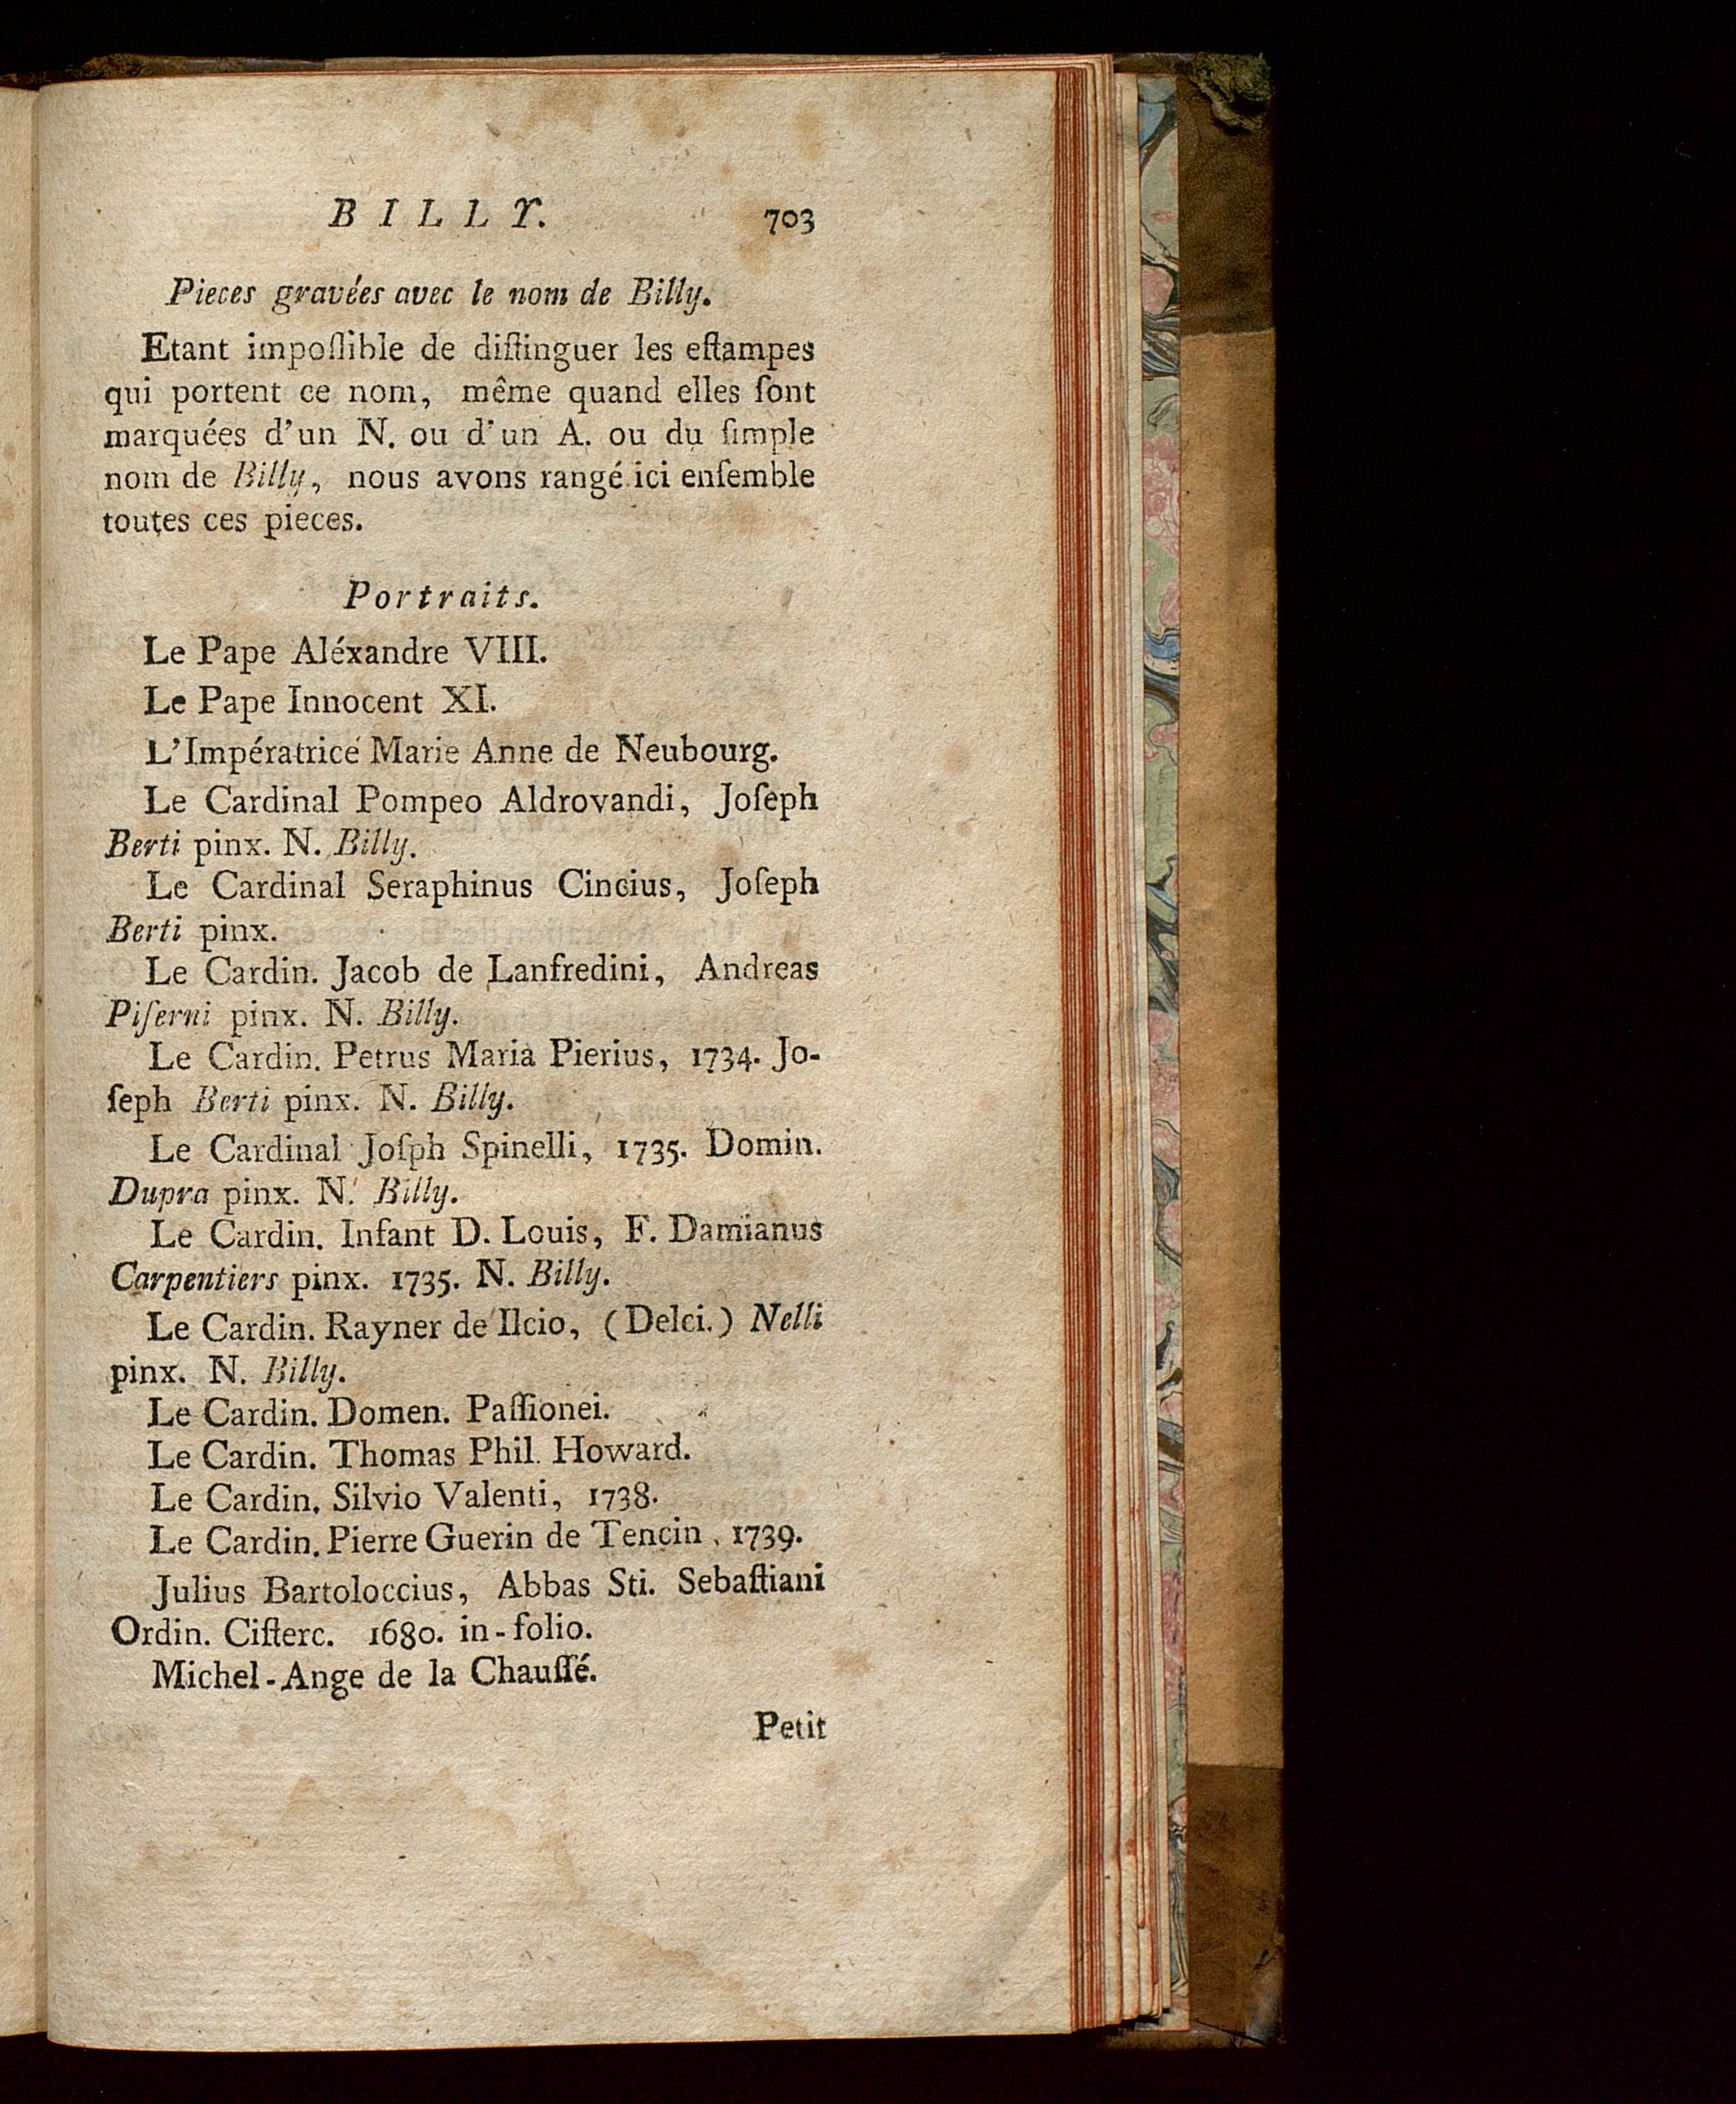 BILLY. 703
Pieces gravées avec le nom de Billy.
Etant impoſſible de diſtinguer les eſtampes
qui portent ce nom, même quand elles ſont
marquées d'un N. ou d'un A. ou du ſimple
nom de Billy, nous avons rangé ici enſemble
toutes ces pieces.
Portraits.
Le Pape Aléxandre VIII.
Le Pape Innocent XI.
L'Impératrice Marie Anne de Neubourg.
Le Cardinal Pompeo Aldrovandi, Joſeph
Berti pinx. N. Billy.
Le Cardinal Seraphinus Cincius, Joſeph
Berti pinx.
Le Cardin. Jacob de Lanfredini, Andreas
Piſerni pinx. N. Billy.
Le Cardin. Petrus Maria Pierius, 1734. Jo-
ſeph Berti pinx. N. Billy.
Le Cardinal Joſph Spinelli, 1735. Domin.
Dupra pinx. N. Billy.
Le Cardin. Infant D. Louis, F. Damianus
Carpentiers pinx. 1735. N. Billy.
Le Cardin. Rayner de Ilcio, (Delci.) Nelli
pinx. N. Billy.
Le Cardin. Domen. Paſſionei.
Le Cardin. Thomas Phil. Howard.
Le Cardin. Silvio Valenti, 1738.
Le Cardin. Pierre Guerin de Tencin, 1739.
Julius Bartoloccius, Abbas Sti. Sebaſtiani
Ordin. Ciſterc. 1680. in-folio.
Michel-Ange de la Chauſſé.
Petit